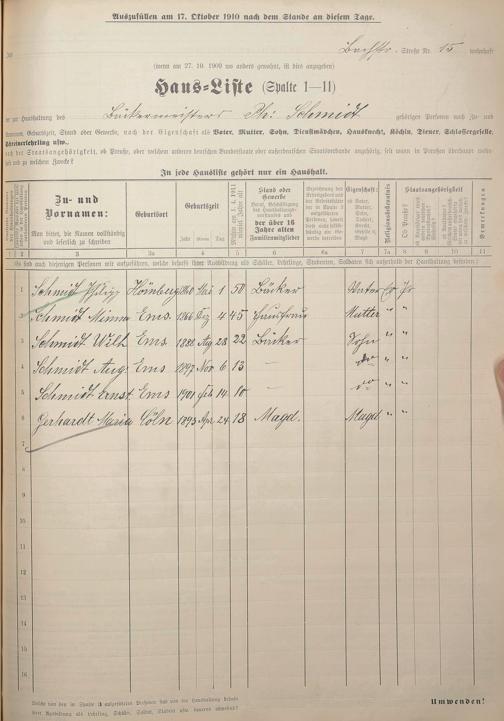 Auszufüllen am 17. Oktober 1910 nach dem Stande an diesem Tage.
Bachstr. - Straße Nr. 15 wohnhaft
(wenn am 27. 10. 1909 wo anders gewohnt, ist dies anzugeben)
Haus-Liste (Spalte 1—11)
der zur Haushaltung des Bäckermeisters Ph: Schmidt gehörigen Personen nach Zu- und
Vornamen, Geburtszeit, Stand oder Gewerbe, nach der Eigenschaft als Vater, Mutter, Sohn, Dienstmädchen, Hausknecht, Köchin, Diener, Schlossergeselle,
Schreinerlehrling usw.,
nach der Staatsangehörigkeit, ob Preuße, oder welchem anderen deutschen Bundesstaate oder außerdeutschen Staatsverbande angehörig, seit wann in Preußen überhaupt wohn-
haft und zu welchem Zwecke?
In jede Hausliste gehört nur ein Haushalt.
Zu- und Vornamen:
Man bittet, die Namen vollständig und leserlich zu schreiben
Geburtsort
Geburtszeit
Jahr Monat Tag
Stand oder Gewerbe
der über 16 Jahre alten Familienmitglieder
Eigenschaft:
Religionsbekenntnis
Staatsangehörigkeit
Ob Preuße?
Bemerkungen
1 2 3 3a 4 5 6 6a 7 7a 8 9 10 11
Es sind auch diejenigen Personen mit aufzuführen, welche behufs ihrer Ausbildung als Schüler, Lehrlinge, Studenten, Soldaten sich außerhalb der Haushaltung befinden!
1 Schmidt Philipp 1860 1 50 Bäcker Vater
2 Schmidt Minna Ems 1866 Dez 4 45 Hausfrau Mutter " "
3 Schmidt Wilh Ems 1888 Aug 28 22 Bäcker Sohn " "
4 Schmidt Aug Ems 1897 Nov 6 13 — " "
5 Schmidt Ernst Ems 1901 Feb 14 10 — " "
6 Gerhardt Maria Cöln 1893 Apr 24 18 Magd. Magd " "
7
8
9
10
11
12
13
14
15
16
Welche von den in Spalte 3 aufgeführten Personen hat von der Haushaltung behufs
ihrer Ausbildung als Lehrling, Schüler, Soldat, Student usw. anderswo
Umwenden!